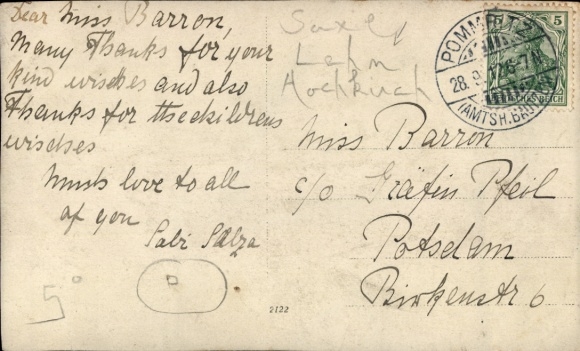 Dear Miss Barron,
Many Thanks for your
kind wisches and also
Thanks for the childrens
wisches
Much love to all
of you
Sabi Salza
5°
Lehn
Hochkirch
POMMRITZ
28.
5
DEUTSCHES REICH
(AMTSH. BAUTZEN)
Miss Barron
c/o Gräfin Pfeil
Potsdam
Birkenstr 6
2122